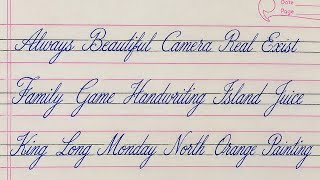 Date
Page
Always Beautiful Camera Real Exist
Family Game Handwriting Island Juice
King Long Monday North Orange Painting